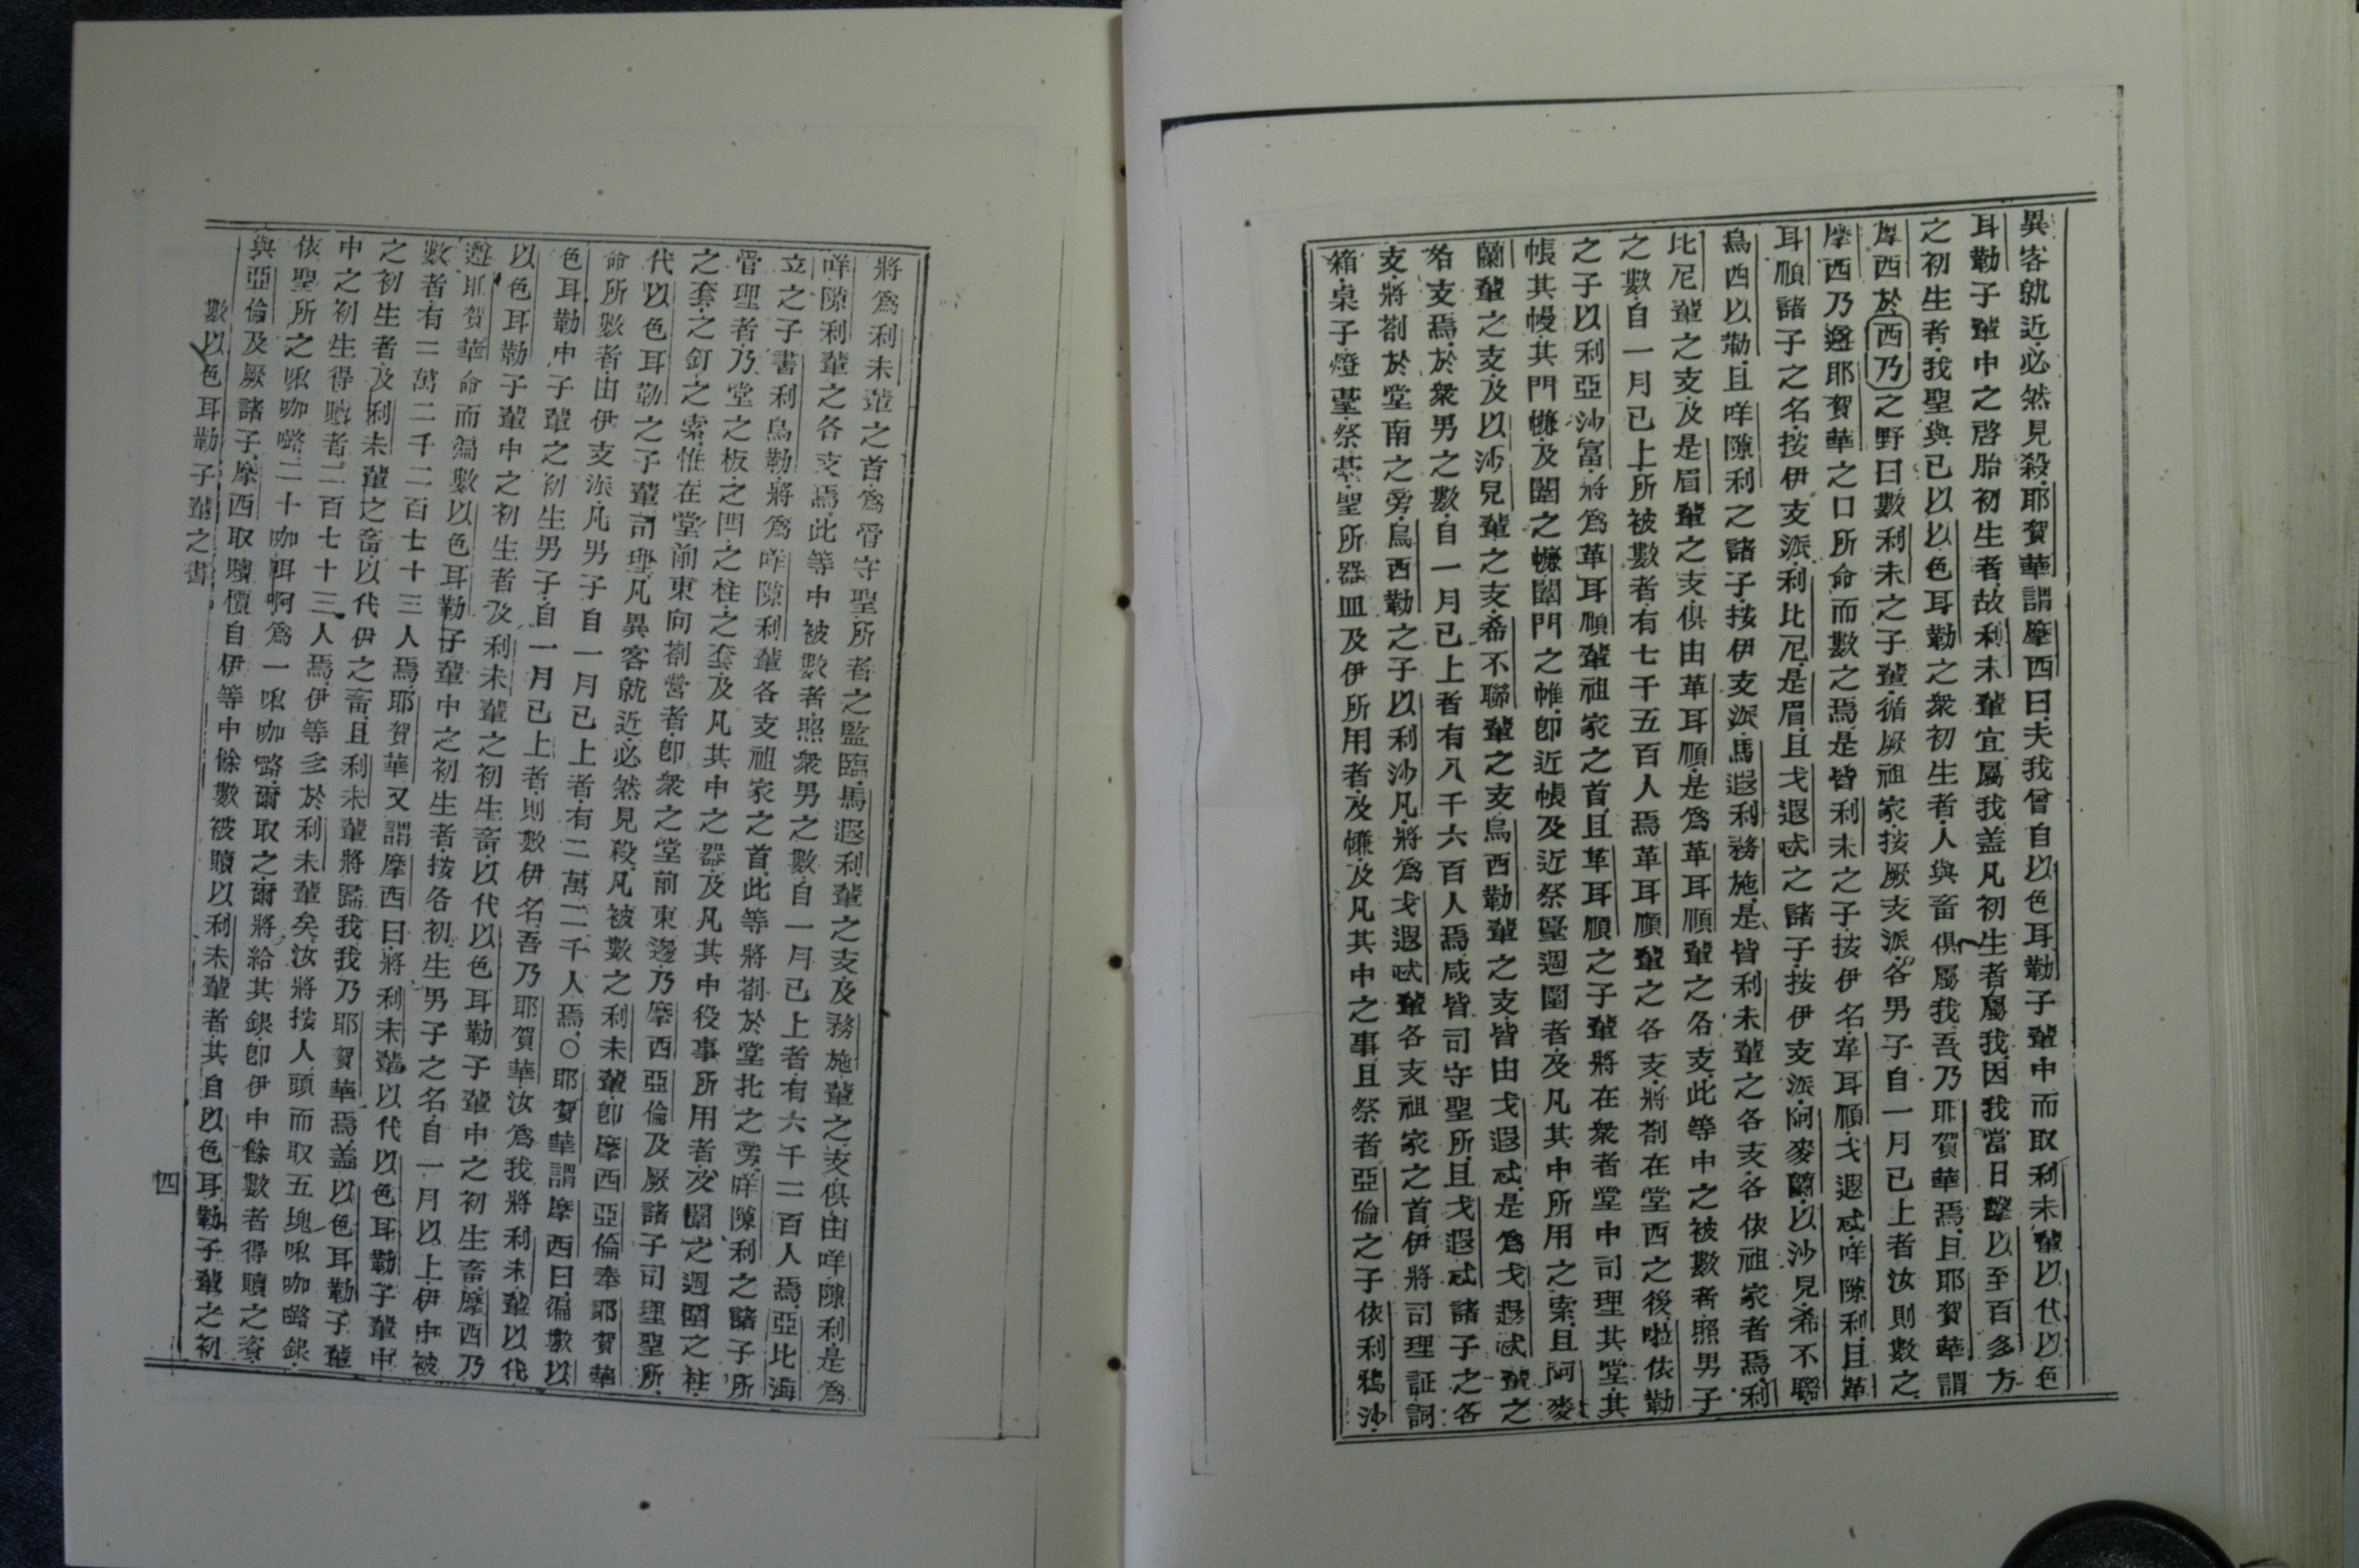 異客就近必然見殺耶賀華謂摩西曰夫我曾自以色耳勒子輩中而取利未輩以代以色
耳勒子輩中之啓胎初生者故利未輩宜屬我盖凡初生者屬我因我當日擊以至百多方
之初生者我聖與已以以色耳勒之衆初生者人與畜俱屬我吾乃耶賀華焉且耶賀華謂
摩西於西乃之野曰數利未之子輩循厥祖家按厥支派各男子自一月已上者汝則數之
摩西乃遵耶賀華之口所命而數之焉是皆利未之子按伊名革耳順戈遐忒咩隙利且革
耳順諸子之名按伊支派利比尼是眉且戈遐忒之諸子按伊支派阿麥蘭以沙見希不聯
烏西以勒且咩隙利之諸子按伊支派馬遐利務施是皆利未輩之各支各依祖家者焉利
比尼輩之支及是眉輩之支俱由革耳順是爲革耳順輩之各支此等中之被數者照男子
之數自一月已上所被數者有七千五百人焉革耳順輩之各支將劄在堂西之後啦依勒
之子以利亞沙富將爲革耳順輩祖家之首且革耳順之子輩將在衆者堂中司理其堂其
帳其幔其門㡘及闈之㡘闈門之帷卽近帳及近祭臺週圍者及凡其中所用之索且阿麥
蘭輩之支及以沙見輩之支希不聯輩之支烏西勒輩之支皆由戈遐忒是爲戈遐忒輩之
各支焉於衆男之數自一月已上者有八千六百人焉咸皆司守聖所且戈遐忒諸子之各
支將劄於堂南之旁烏西勒之子以利沙凡將爲戈遐忒輩各支祖家之首伊將司理証詞
箱桌子燈臺祭臺聖所器皿及伊所用者及㡘及凡其中之事且祭者亞倫之子依利鴉沙
將爲利未輩之首爲管守聖所者之監臨馬遐利輩之支及務施輩之支俱由咩隙利是爲
咩隙利輩之各支焉此等中被數者照衆男之數自一月已上者有六千二百人焉亞比海
立之子書利烏勒將爲咩隙利輩各支祖家之首此等將劄於堂北之旁咩隙利之諸子所
管理者乃堂之板之閂之柱之套及凡其中之器及凡其中役事所用者及闈之週圍之柱
之套之釘之索惟在堂前東向劄營者卽衆之堂前東邊乃摩西亞倫及厥諸子司理聖所
代以色耳勒之子輩司理凡異客就近必然見殺凡被數之利未輩卽摩西亞倫奉耶賀華
命所數者由伊支派凡男子自一月已上者有二萬二千人焉○耶賀華謂摩西曰徧數以
色耳勒中子輩之初生男子自一月已上者則數伊名吾乃耶賀華汝爲我將利未輩以代
以色耳勒子輩中之初生者及利未輩之初生畜以代以色耳勒子輩中之初生畜摩西乃
遵耶賀華命而徧數以色耳勒子輩中之初生者按各初生男子之名自一月以上伊中被
數者有二萬二千二百七十三人焉耶賀華又謂摩西曰將利未輩以代以色耳勒子輩中
之初生者及利未輩之畜以代伊之畜且利未輩將歸我我乃耶賀華焉盖以色耳勒子輩
中之初生得贖者二百七十三人焉伊等多於利未輩矣汝將按人頭而取五塊㖠咖嚕銀
依聖所之㖠咖嚕二十咖咡啊爲一㖠咖嚕爾取之爾將給其銀卽伊中餘數者得贖之資
與亞倫及厥諸子摩西取贖價自伊等中餘數被贖以利未輩者其自以色耳勒子輩之初
數以色耳勒子輩之書
四